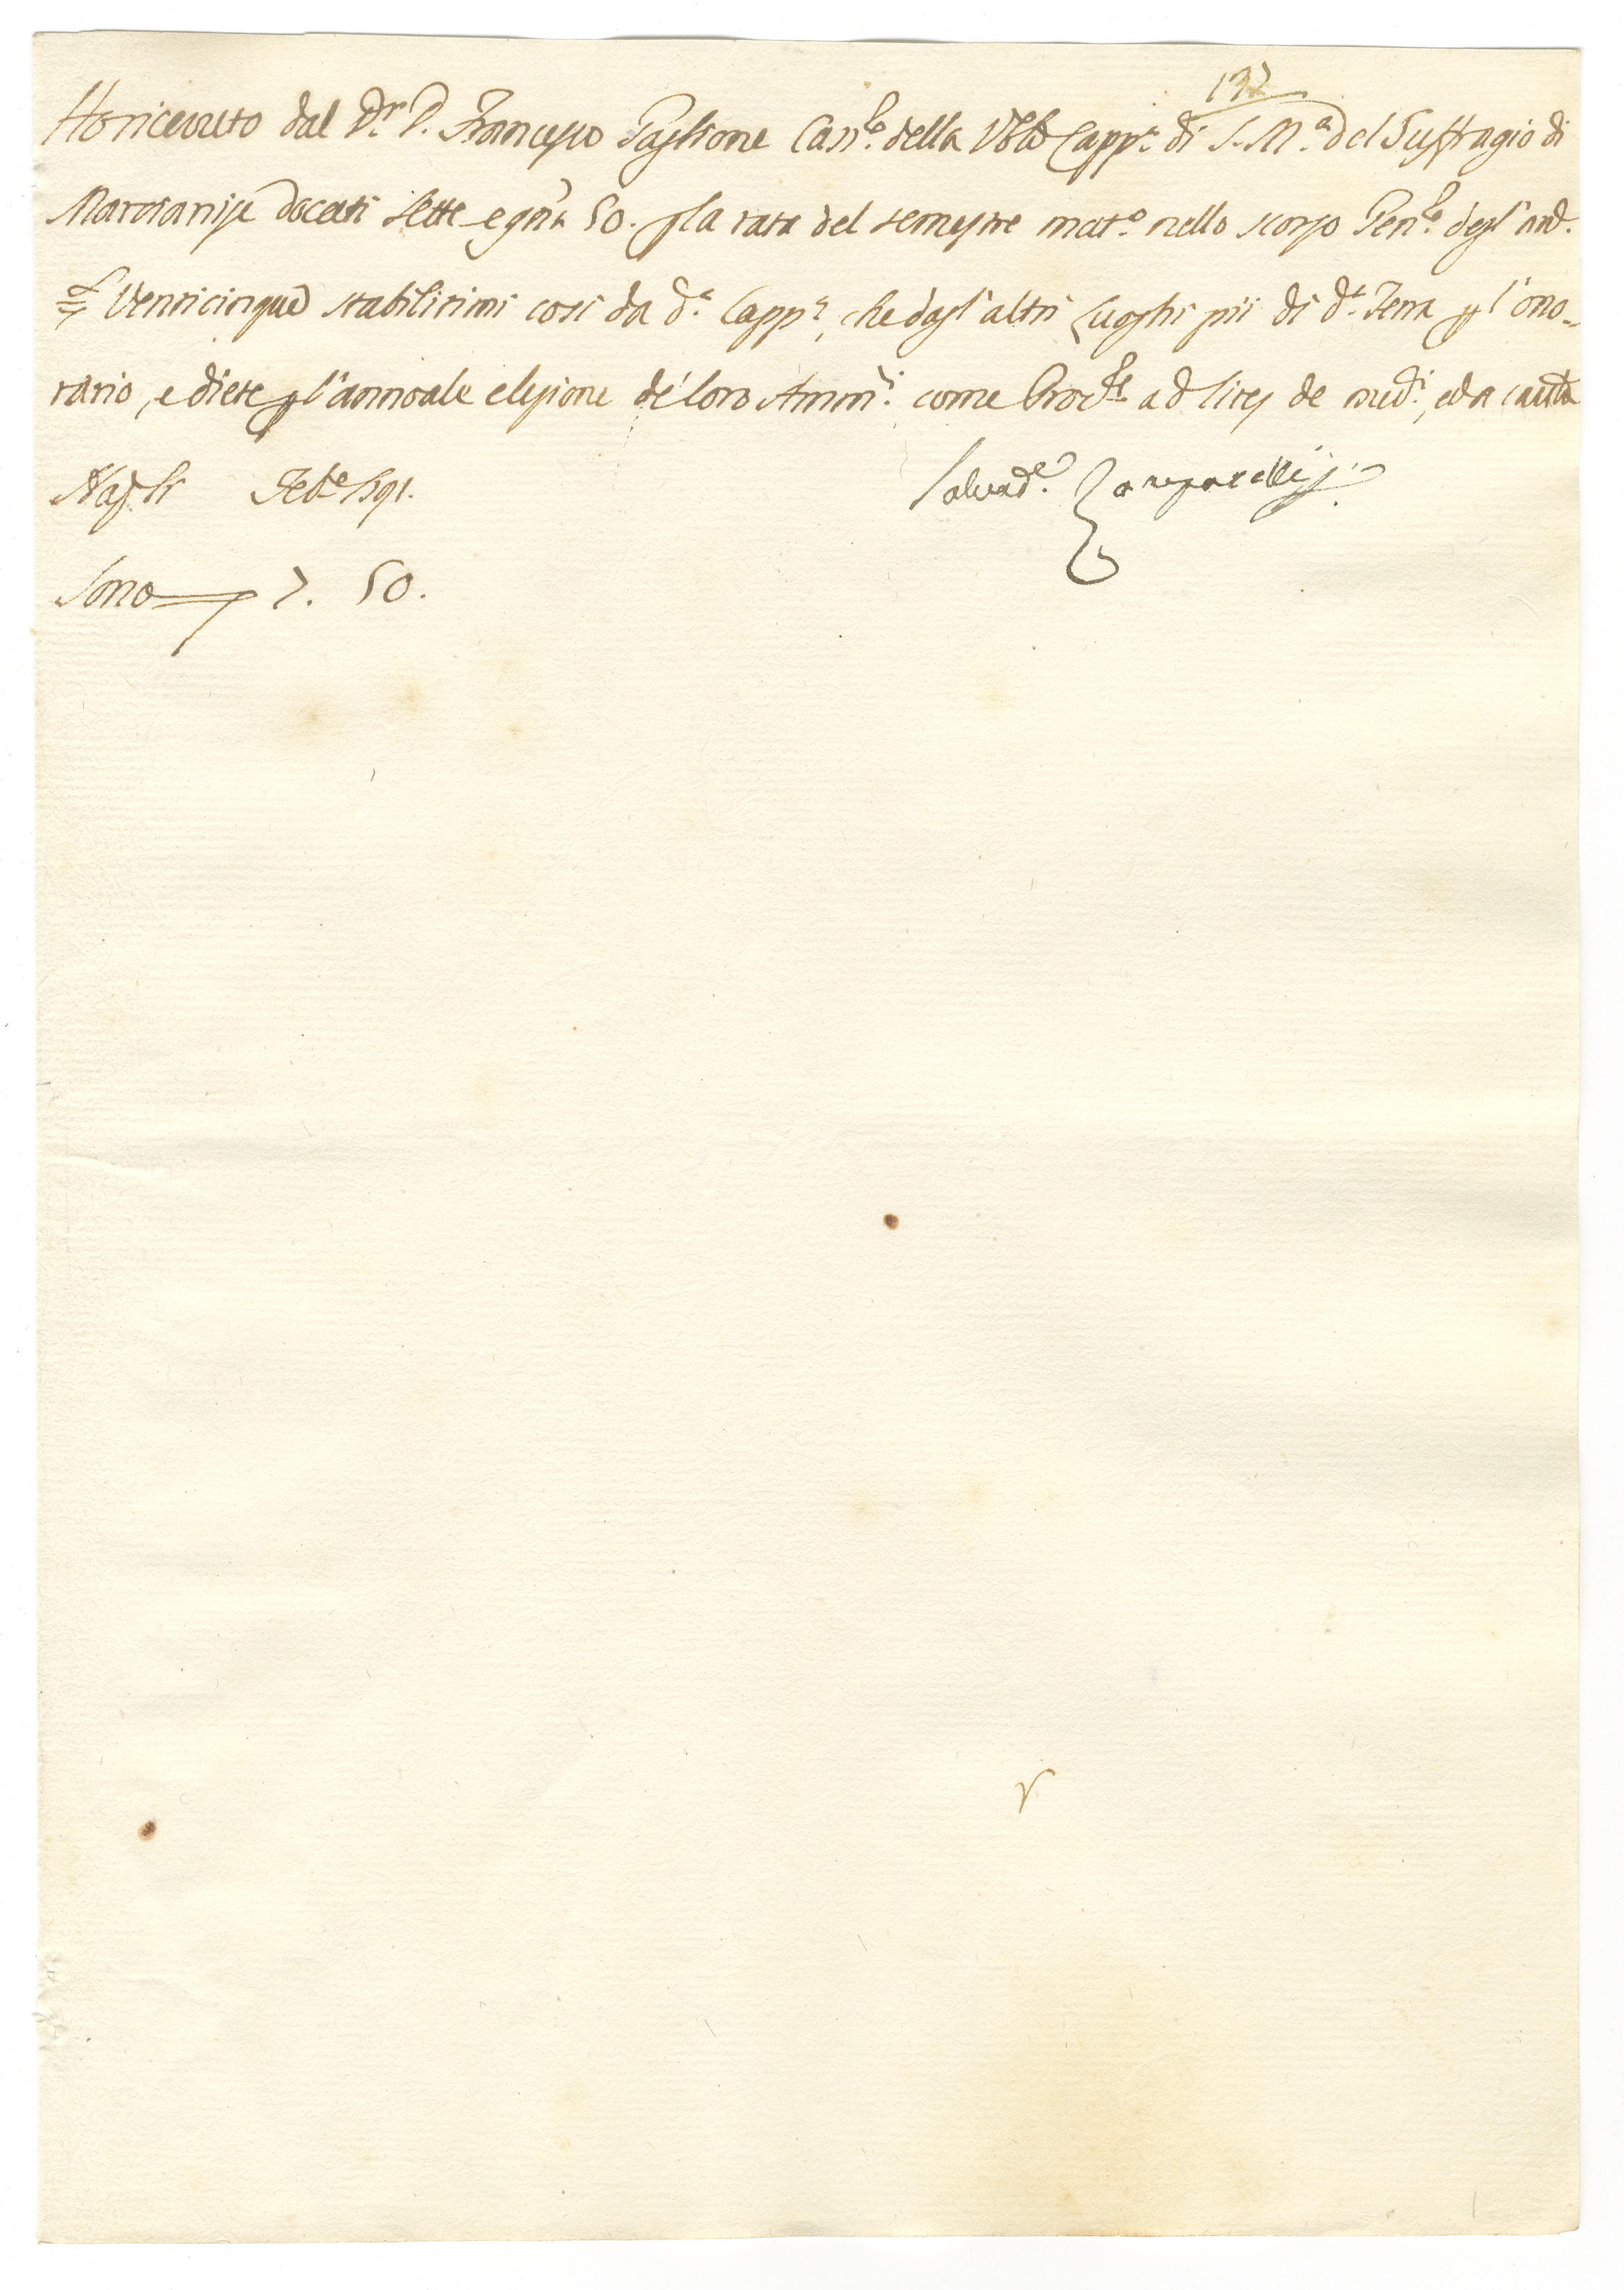 137
Ho ricevuto dal D.r D. Francesco Paglione Cass.re della V.ble Capp.a di S. M.a del Suffragio di
Marcianise docati sette e gra 50. p la rata del semestre mat.o nello scorso Gen.ro degl'and.
Venticinque stabilitimi così da d.a Capp.a, che dagl'altri Luoghi pii di d.a Terra p l'ono-
rario, e diete p l'annoale elezione de' loro Amm.ri come Proc.re ad lites de med.i, ed a cautela
Napoli Feb.o 1791.
Salvad.e Zamparelli
Sono 7. 50.